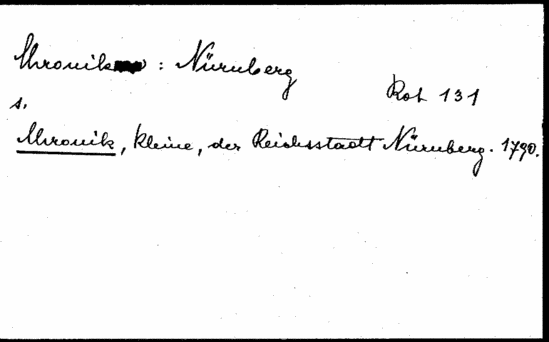 Chronik : Nürnberg
Rot 131
s.
Chronik, kleine, der Reichsstadt Nürnberg. 1790.